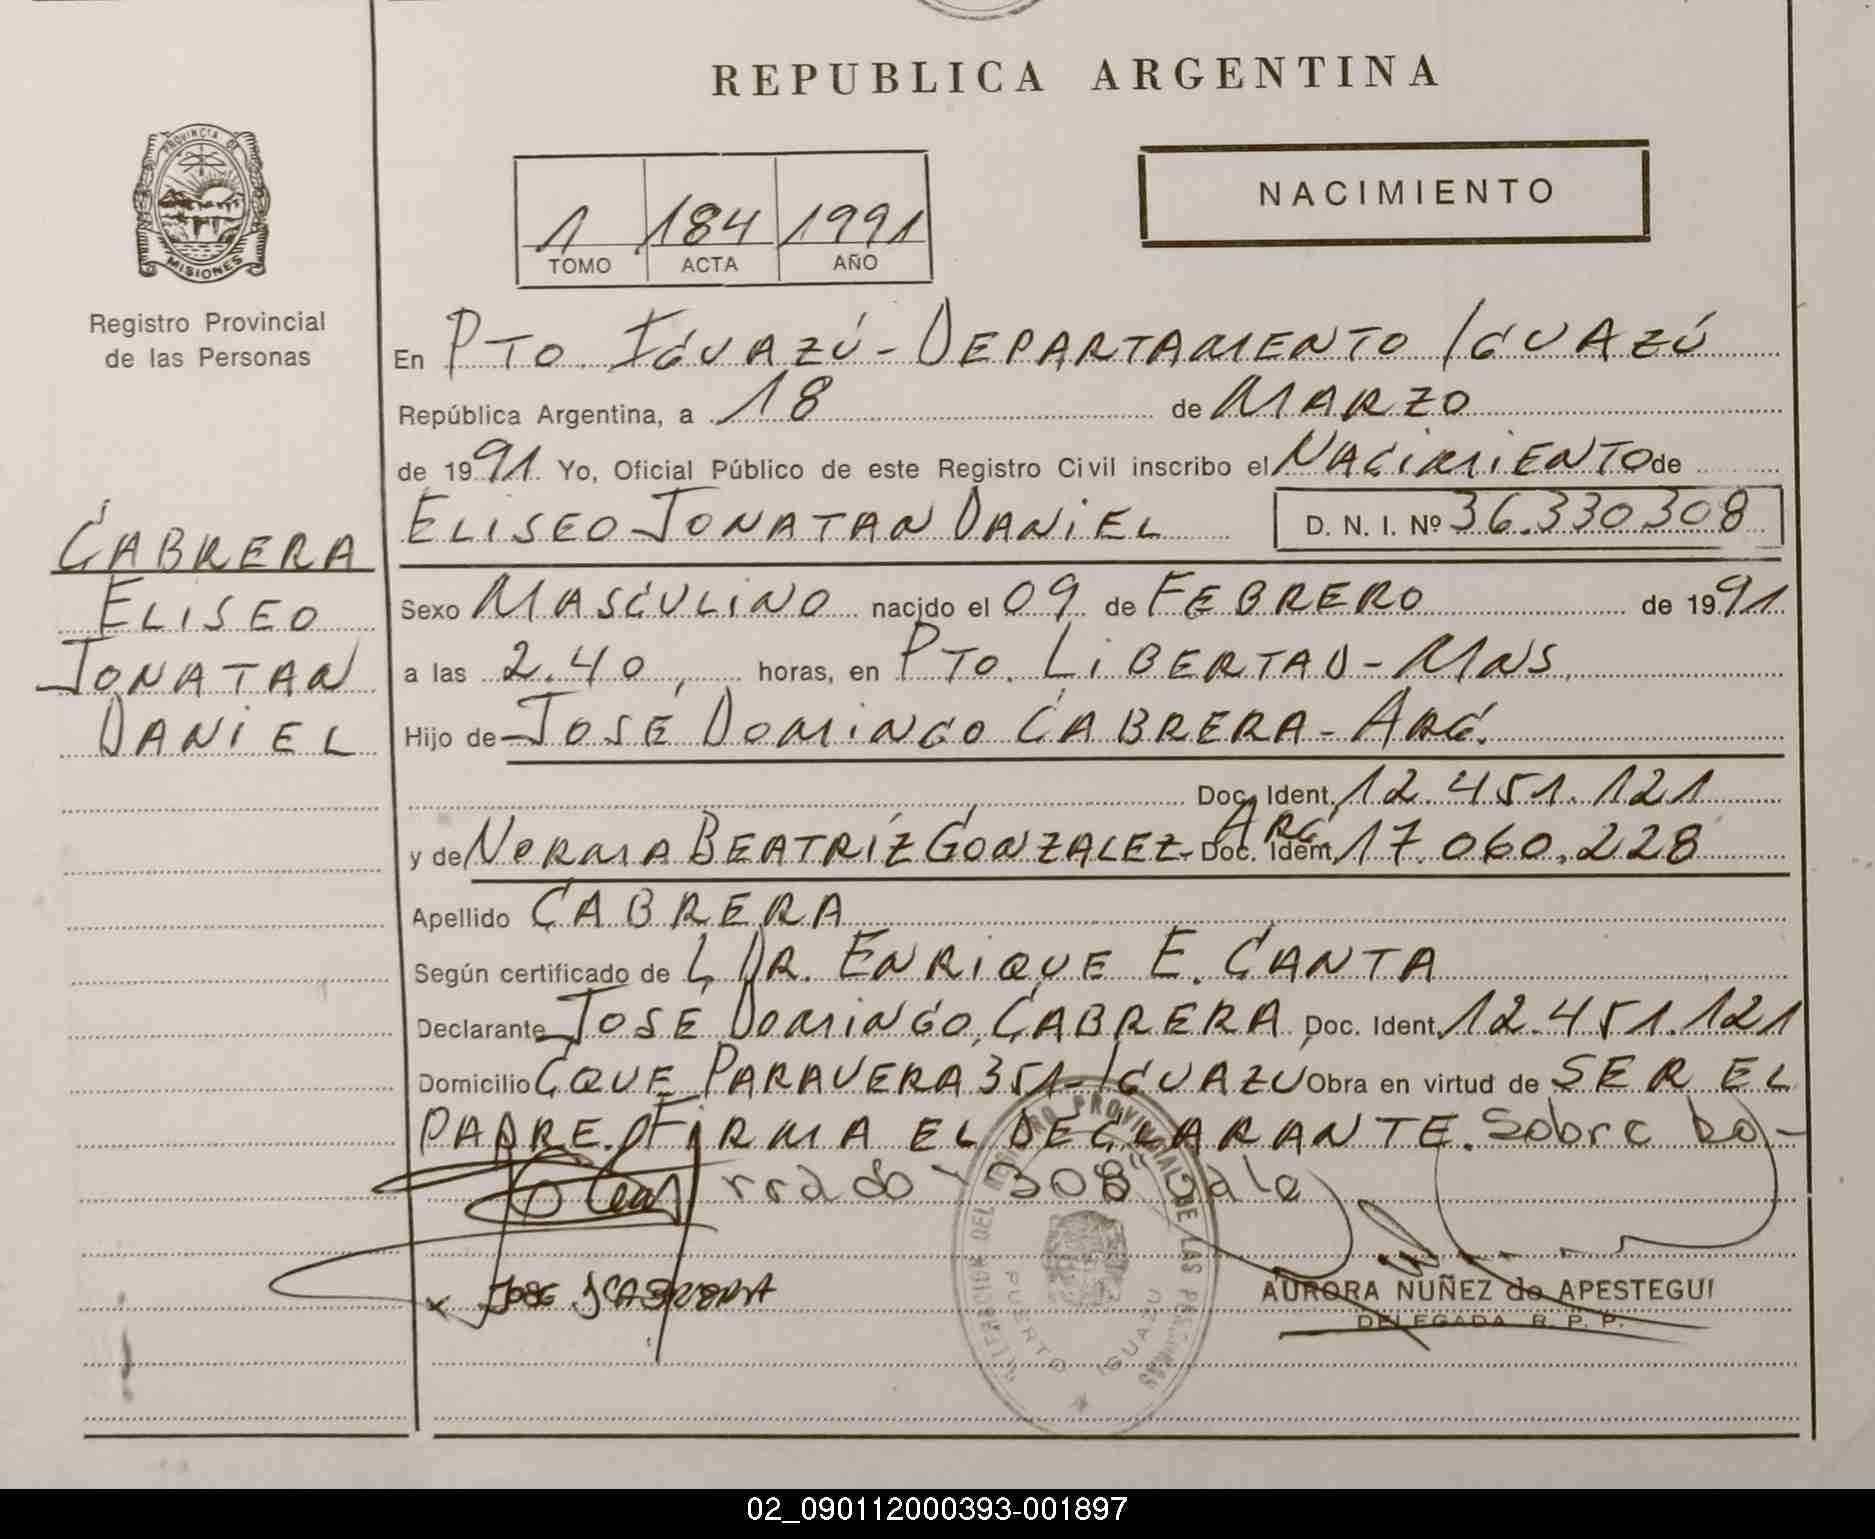 REPUBLICA ARGENTINA
PROVINCIA DE
MISIONES
Registro Provincial
de las Personas
NACIMIENTO
1 184 1991
TOMO ACTA AÑO
En PTO IGUAZÚ - DEPARTAMENTO IGUAZÚ
República Argentina, a 18 de MARZO
de 1991. Yo, Oficial Público de este Registro Civil inscribo el NACIMIENTO de
ELISEO JONATAN DANIEL D. N. I. Nº 36.330308
CABRERA
ELISEO
JONATAN
DANIEL
Sexo MASCULINO nacido el 09 de FEBRERO de 1991
a las 2.40, horas, en PTO. LIBERTAD - MNS.
Hijo de JOSÉ DOMINGO CABRERA - ARG.
Doc. Ident. 12.451.121
y de NORMA BEATRÍZ GONZALEZ - ARG. Doc. Ident. 17.060.228
Apellido CABRERA
Según certificado de L DR. ENRIQUE E. CANTA
Declarante JOSÉ DOMINGO CABRERA Doc. Ident. 12.451.121
Domicilio CQUE PARAVERA 351 - IGUAZÚ Obra en virtud de SER EL
PADRE. FIRMA EL DECLARANTE. Sobre bo-
rrado "308" vale
JOSE CABRERA
AURORA NUÑEZ de APESTEGUI
DELEGADA R. P. P.
DEL REGISTRO PROVINCIAL DE LAS PERSONAS
PUERTO IGUAZU
02_090112000393-001897